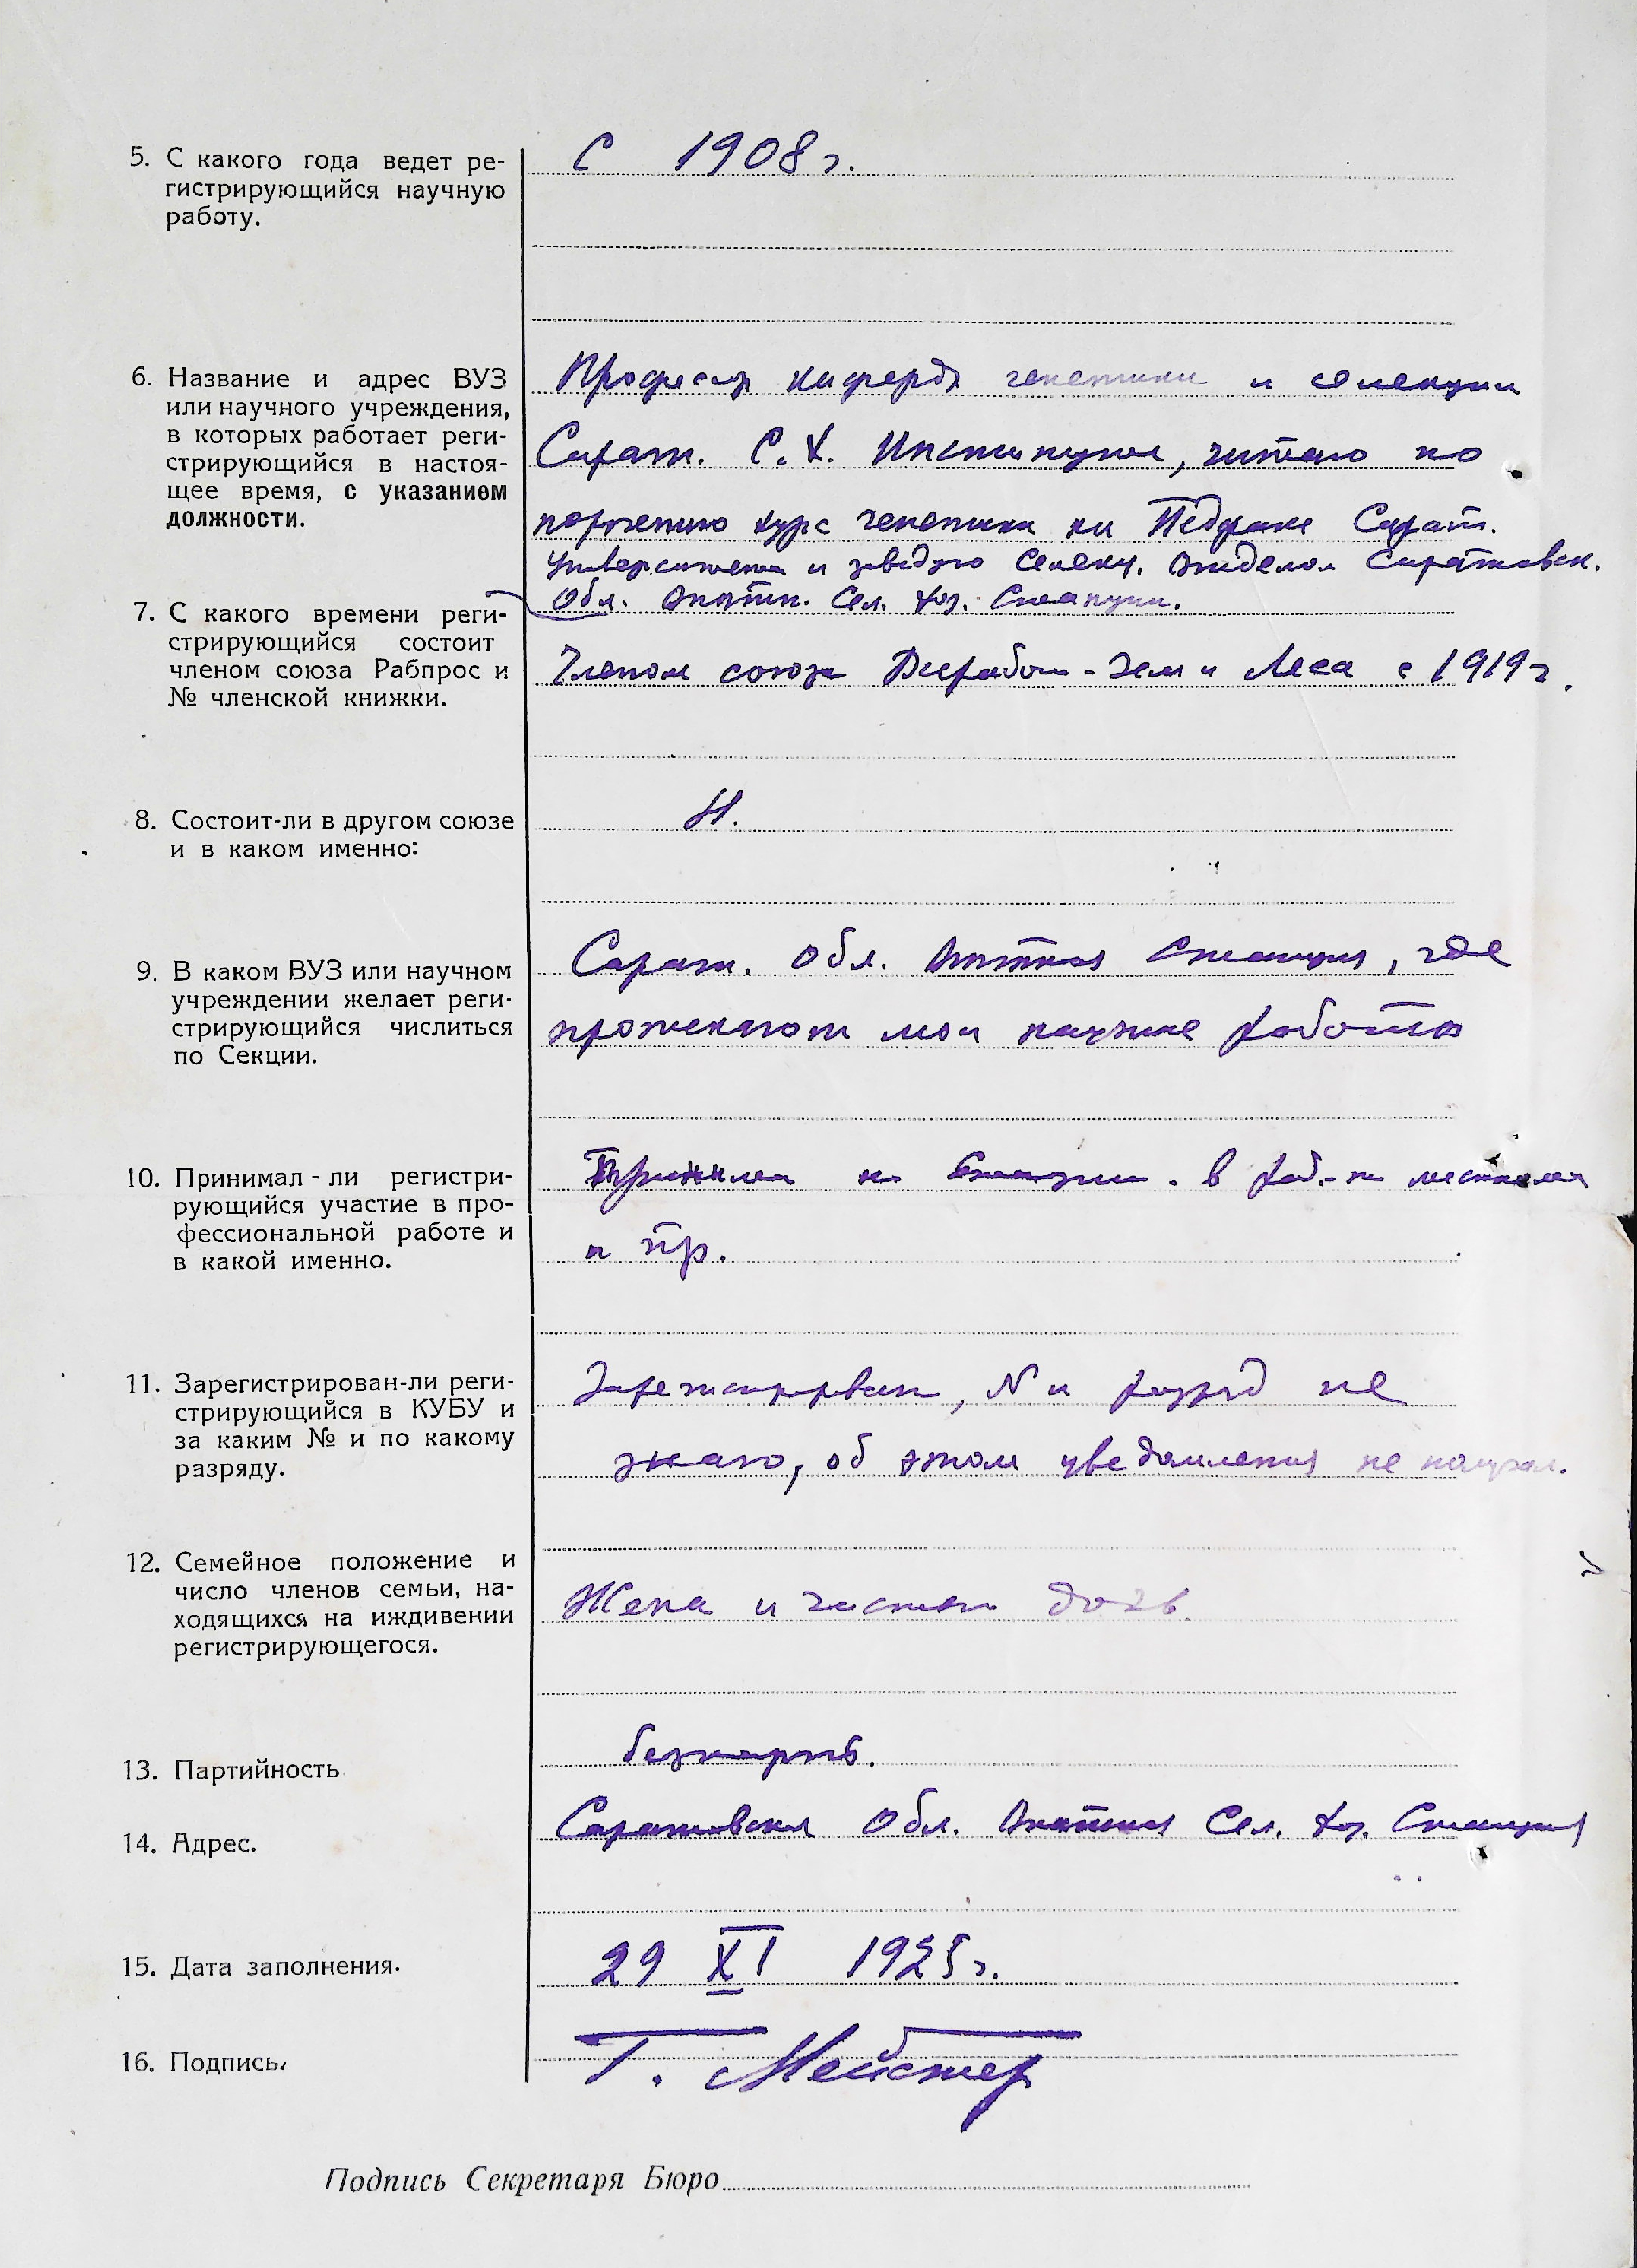 5. С какого года ведет ре-
гистрирующийся научную
работу.
С 1908 г.
6. Название и адрес ВУЗ
или научного учреждения,
в которых работает реги-
стрирующийся в настоя-
щее время, с указанием
должности.
Профессор кафедры генетики и селекции
Сарат. С. Х. Института, читаю по
поручению курс генетики на Педфаке Сарат.
Университета и заведую Селекц. Отделом Саратовск.
Обл. Опытн. Сел. Хоз. Станции.
7. С какого времени реги-
стрирующийся состоит
членом союза Рабпрос и
№ членской книжки.
Членом союза Всеработ-Зем и Леса с 1919 г.
8. Состоит-ли в другом союзе
и в каком именно:
9. В каком ВУЗ или научном
учреждении желает реги-
стрирующийся числиться
по Секции.
Сарат. Обл. Опытная Станция, где
протекают мои научные работы
10. Принимал - ли регистри-
рующийся участие в про-
фессиональной работе и
в какой именно.
Принимал на Станции. в месткома
и пр.
11. Зарегистрирован-ли реги-
стрирующийся в КУБУ и
за каким № и по какому
разряду.
Зарегистрирован, N и разряд не
знаю, об этом уведомления не получал.
12. Семейное положение и
число членов семьи, на-
ходящихся на иждивении
регистрирующегося.
Жена и дочь.
13. Партийность
безпарт.
14. Адрес.
Саратовская Обл. Опытная Сел. Хоз. Станция
15. Дата заполнения.
29 XI 1925 г.
16. Подпись.
Г. Мейстер
Подпись Секретаря Бюро